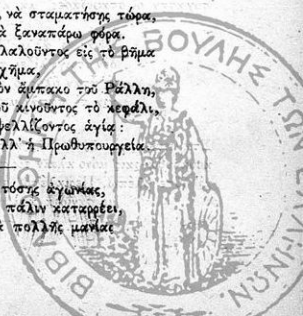 νὰ σταματήσῃς τώρα,
ξαναπάρω φόρα.
λαλοῦντος εἰς τὸ βῆμα
σχῆμα,
ἄμπακο τοῦ Ράλλη,
κινοῦντος τὸ κεφάλι,
ψελλίζοντος ἁγία :
ἀλλ' ἡ Πρωθυπουργεία.
τόσης ἀγωνίας,
πάλιν καταρρέει,
πολλῆς μανίας
ΒΙΒΛΙΟΘΗΚΗ ΤΗΣ ΒΟΥΛΗΣ ΤΩΝ ΕΛΛΗΝΩΝ